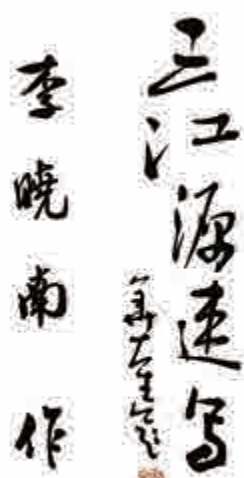 三江源速写
李晓南 作